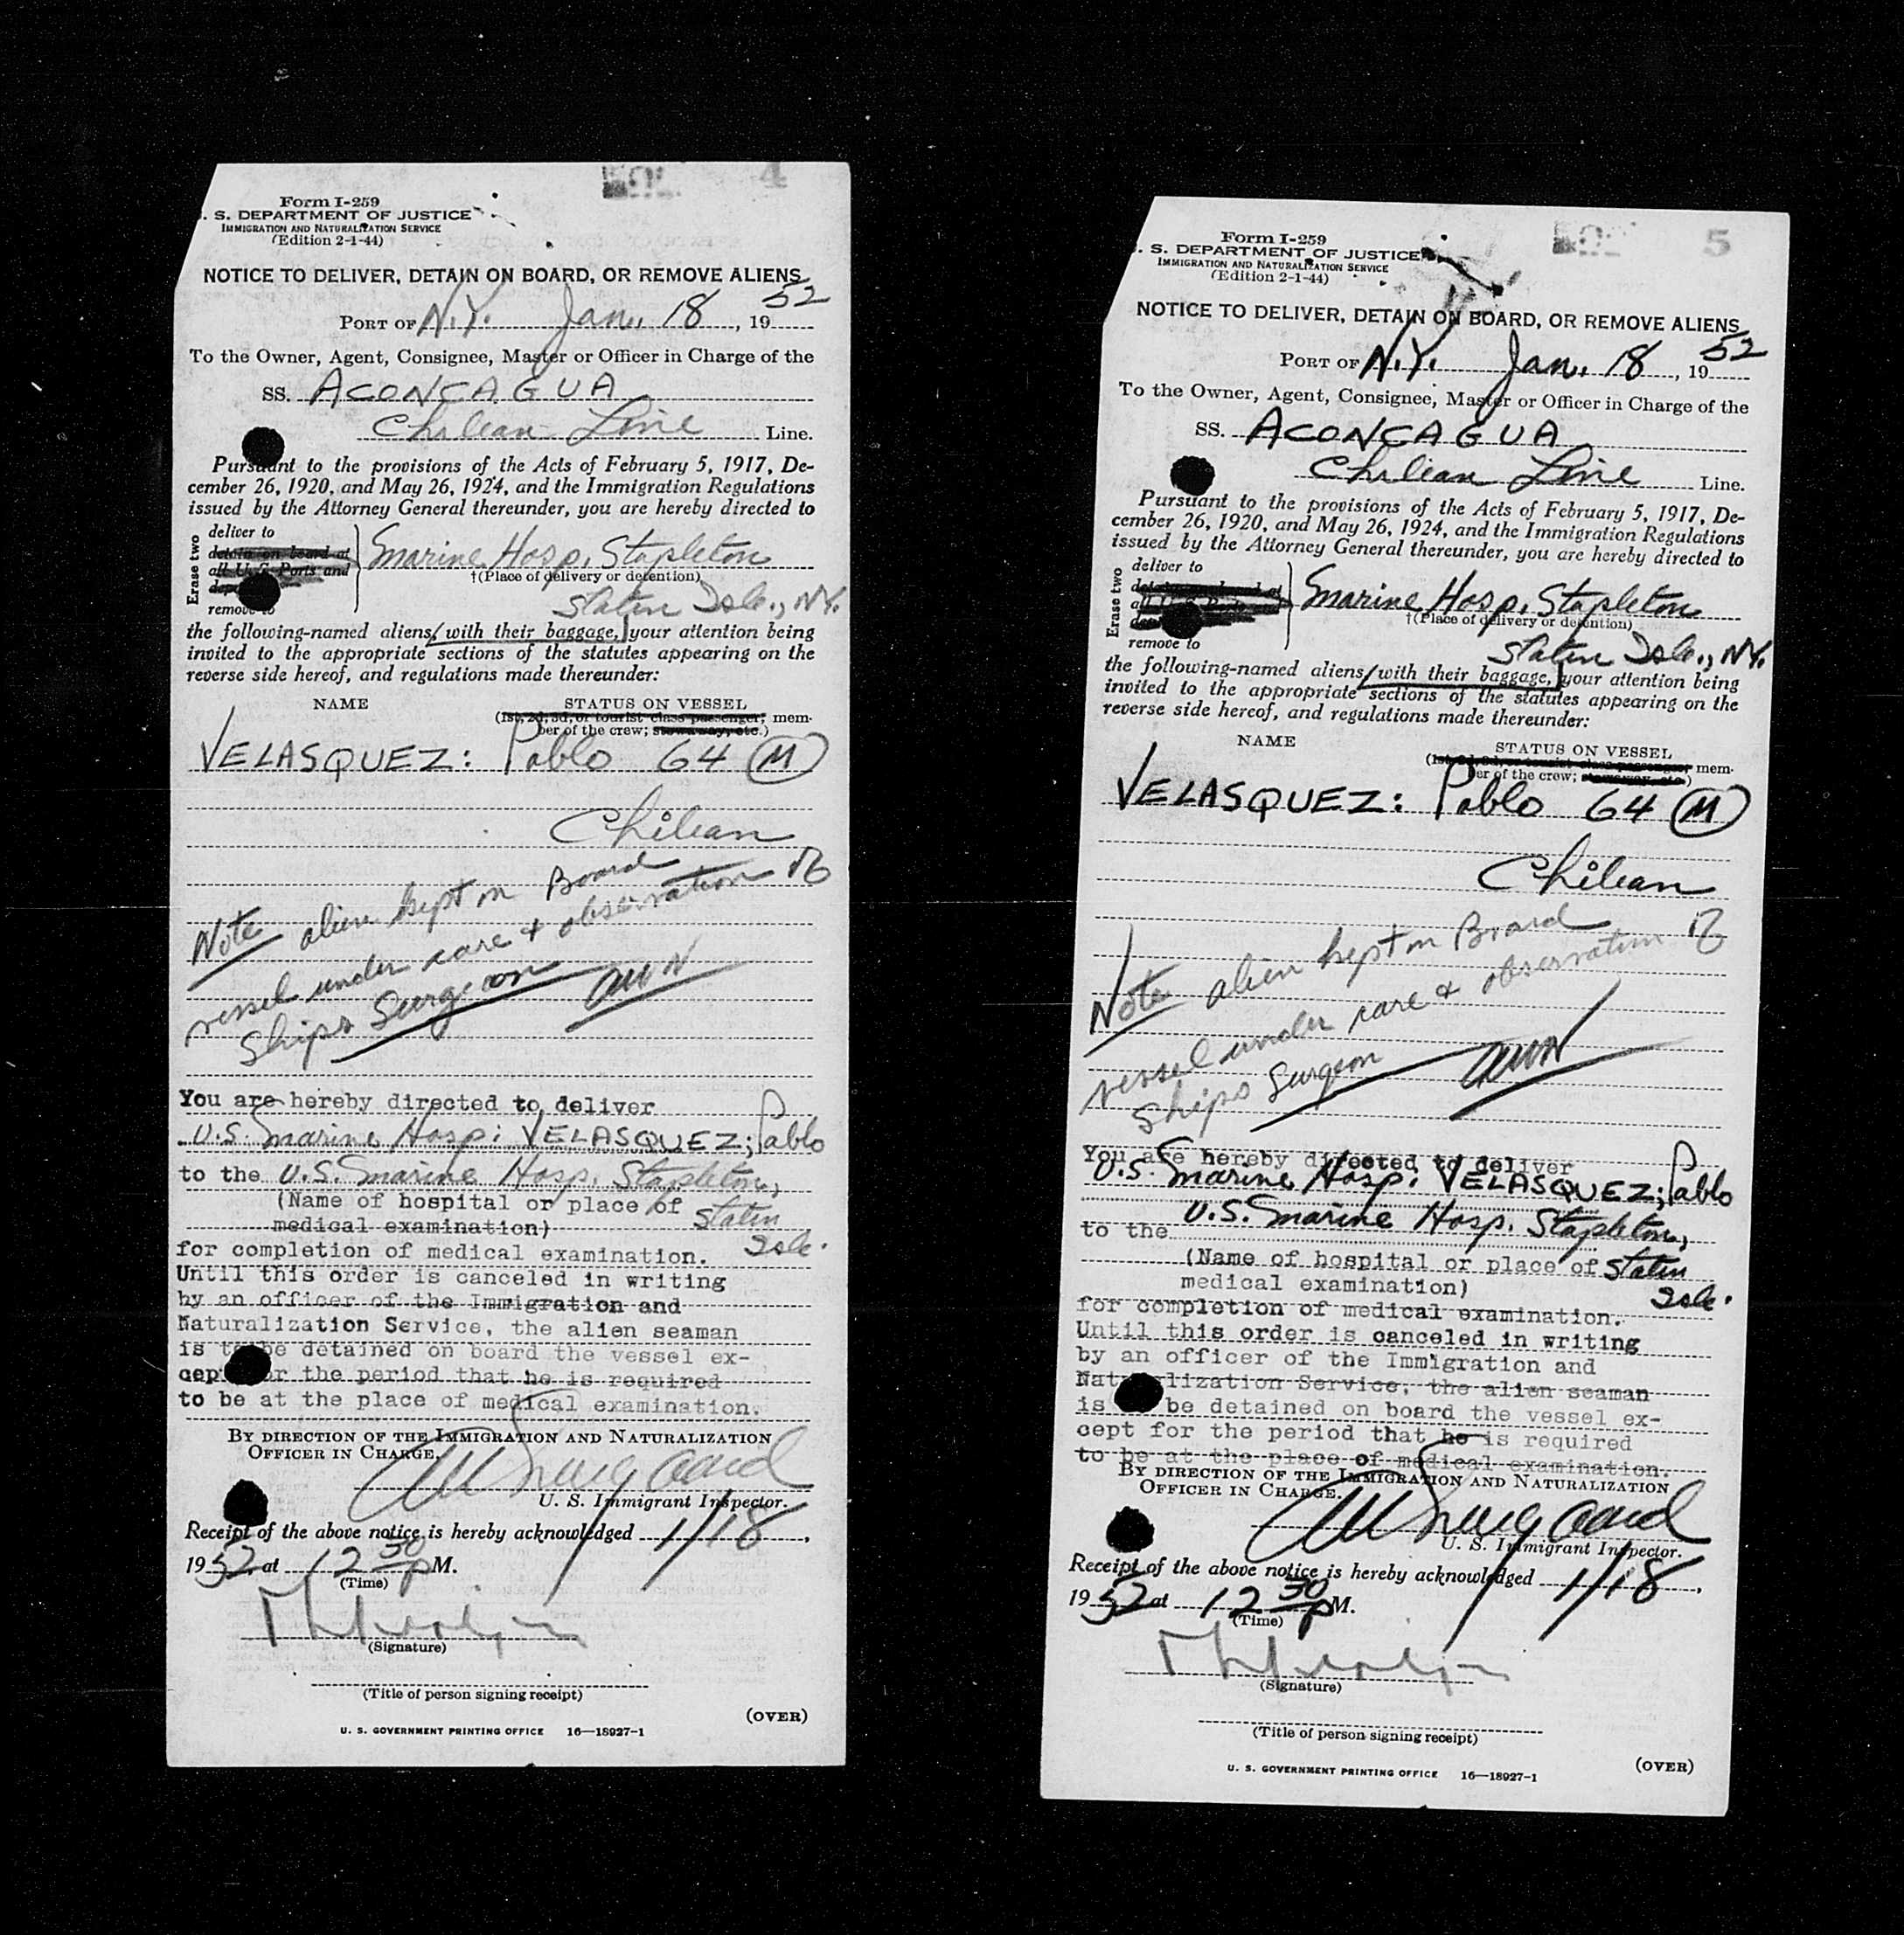 4
Form I-259
. S. DEPARTMENT OF JUSTICE
IMMIGRATION AND NATURALIZATION SERVICE
(Edition 2-1-44)
NOTICE TO DELIVER, DETAIN ON BOARD, OR REMOVE ALIENS
PORT OF N.Y. Jan. 18, 1952
To the Owner, Agent, Consignee, Master or Officer in Charge of the
SS. ACONCAGUA
Chilean Line Line.
Pursuant to the provisions of the Acts of February 5, 1917, De-
cember 26, 1920, and May 26, 1924, and the Immigration Regulations
issued by the Attorney General thereunder, you are hereby directed to
Erase two
deliver to
detain on board at
all U.S. Ports and
remove to
Marine Hosp. Stapleton
†(Place of delivery or detention)
Staten Isle., N.Y.
the following-named aliens, with their baggage, your attention being
invited to the appropriate sections of the statutes appearing on the
reverse side hereof, and regulations made thereunder:
NAME STATUS ON VESSEL
(1st, 2d, 3d, or tourist class passenger; mem-
ber of the crew; stowaway, etc.)
VELASQUEZ: Pablo 64 M
Chilean
Note alien kept on Board
vessel under care & observation of
Ships Surgeon AWN
You are hereby directed to deliver
U.S. Marine Hosp: VELASQUEZ; Pablo
to the U.S. Marine Hosp. Stapleton,
(Name of hospital or place of Staten
medical examination) Isle.
for completion of medical examination.
Until this order is canceled in writing
by an officer of the Immigration and
Naturalization Service, the alien seaman
is to be detained on board the vessel ex-
cept for the period that he is required
to be at the place of medical examination.
BY DIRECTION OF THE IMMIGRATION AND NATURALIZATION
OFFICER IN CHARGE.
U. S. Immigrant Inspector.
Receipt of the above notice is hereby acknowledged 1/18,
1952 at 12 30 P M.
(Time)
(Signature)
(Title of person signing receipt)
(OVER)
U. S. GOVERNMENT PRINTING OFFICE 16—18927-1
5
Form I-259
. S. DEPARTMENT OF JUSTICE
IMMIGRATION AND NATURALIZATION SERVICE
(Edition 2-1-44)
NOTICE TO DELIVER, DETAIN ON BOARD, OR REMOVE ALIENS
PORT OF N.Y. Jan. 18, 1952
To the Owner, Agent, Consignee, Master or Officer in Charge of the
SS. ACONCAGUA
Chilean Line Line.
Pursuant to the provisions of the Acts of February 5, 1917, De-
cember 26, 1920, and May 26, 1924, and the Immigration Regulations
issued by the Attorney General thereunder, you are hereby directed to
Erase two
deliver to
remove to
Marine Hosp. Stapleton
†(Place of delivery or detention)
Staten Isle., N.Y.
the following-named aliens, with their baggage, your attention being
invited to the appropriate sections of the statutes appearing on the
reverse side hereof, and regulations made thereunder:
NAME STATUS ON VESSEL
(1st, 2d, 3d, or tourist class passenger; mem-
ber of the crew; stowaway, etc.)
VELASQUEZ: Pablo 64 M
Chilean
Note alien kept on Board
vessel under care & observation of
Ships Surgeon AWN
You are hereby directed to deliver
U.S. Marine Hosp: VELASQUEZ; Pablo
to the U.S. Marine Hosp. Stapleton,
(Name of hospital or place of Staten
medical examination) Isle.
for completion of medical examination.
Until this order is canceled in writing
by an officer of the Immigration and
Naturalization Service, the alien seaman
is to be detained on board the vessel ex-
cept for the period that he is required
to be at the place of medical examination.
BY DIRECTION OF THE IMMIGRATION AND NATURALIZATION
OFFICER IN CHARGE.
U. S. Immigrant Inspector.
Receipt of the above notice is hereby acknowledged 1/18,
1952 at 12 30 P M.
(Time)
(Signature)
(Title of person signing receipt)
(OVER)
U. S. GOVERNMENT PRINTING OFFICE 16—18927-1